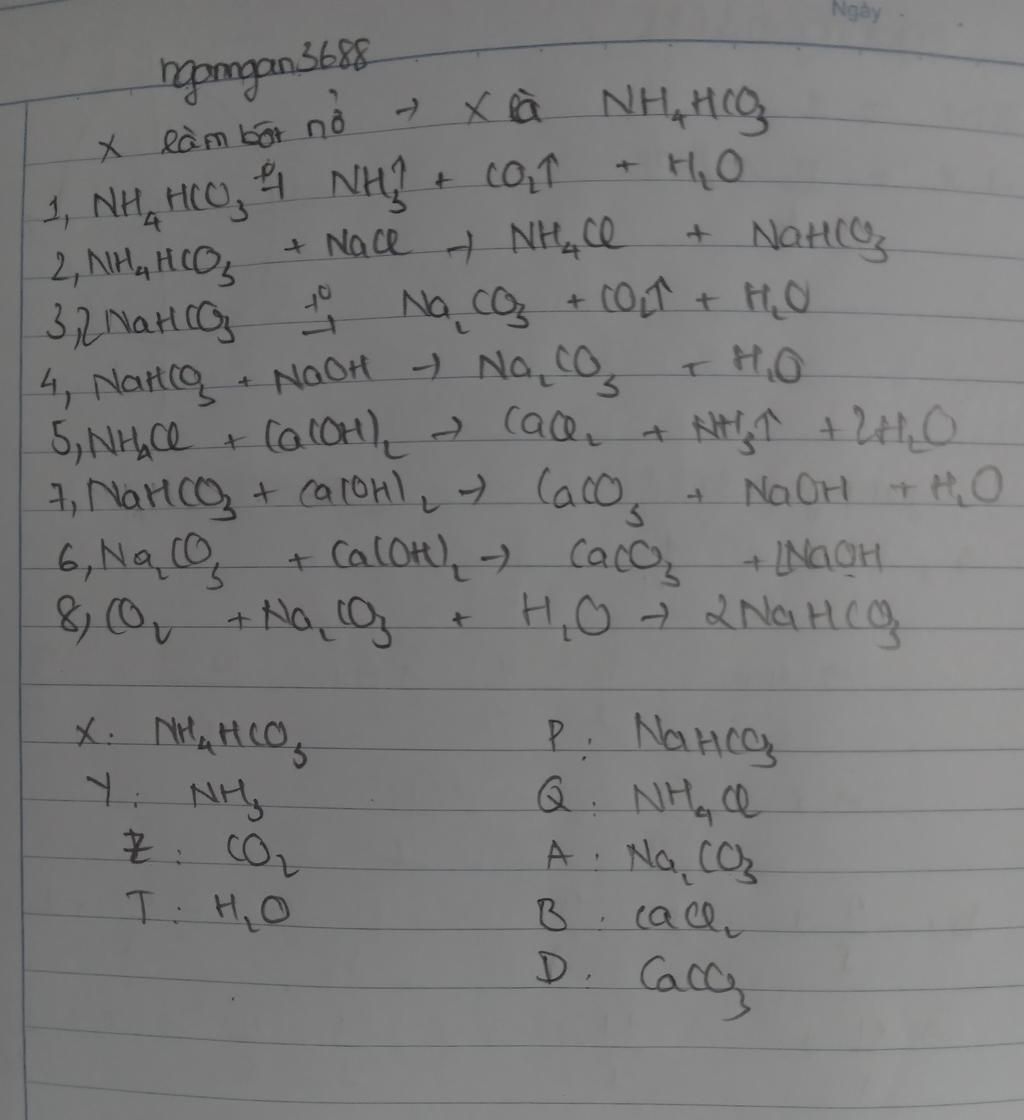 Ngày
ngamgan3688
X làm bột nở → X là NH₄HCO₃
1, NH₄HCO₃ t⁰→ NH₃↑ + CO₂↑ + H₂O
2, NH₄HCO₃ + NaCl → NH₄Cl + NaHCO₃
3, 2NaHCO₃ t⁰→ Na₂CO₃ + CO₂↑ + H₂O
4, NaHCO₃ + NaOH → Na₂CO₃ + H₂O
5, NH₄Cl + Ca(OH)₂ → CaCl₂ + NH₃↑ + 2H₂O
7, NaHCO₃ + Ca(OH)₂ → CaCO₃ + NaOH + H₂O
6, Na₂CO₃ + Ca(OH)₂ → CaCO₃ + 2NaOH
8, CO₂ + Na₂CO₃ + H₂O → 2NaHCO₃
X: NH₄HCO₃ P: NaHCO₃
Y: NH₃ Q: NH₄Cl
Z: CO₂ A: Na₂CO₃
T: H₂O B: CaCl₂
D: CaCO₃